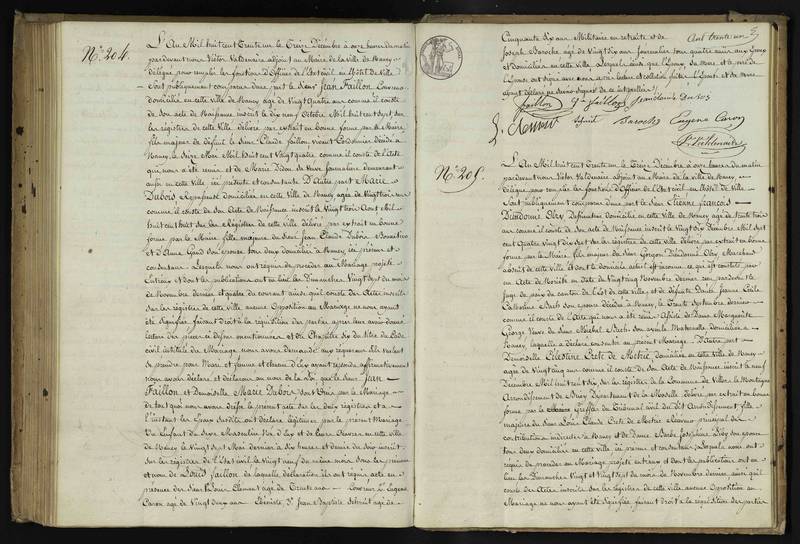 N.º 204.
L'An Mil huit cent Trente un le Treize Décembre à onze heures du matin
pardevant nous Victor Valdenaire adjoint au Maire de la Ville de Nancy
délégué pour remplir les fonctions d'Officier de l'Etat civil en l'hôtel de Ville
Sont publiquement comparus d'une part le Sieur Jean Faillon
domicilié en cette ville de Nancy agé de Vingt quatre ans comme il conste
de son acte de Naissance inscrit le dix neuf Octobre Mil huit cent sept sur
les registres de cette ville délivré par extrait en bonne forme par le Maire,
fils majeur de défunt le Sieur Claude Faillon, vivant Cordonnier décédé à
Nancy, le Seize Mai Mil huit cent Vingt quatre comme il conste de l'acte
qui nous a été remis et de Marie sa Veuve Journalière demeurant
aussi en cette Ville ici présente et consentante D'Autre part Marie
Dubois domiciliée en cette Ville de Nancy agée de Vingt trois ans
comme il conste de son acte de Naissance inscrit le Vingt trois Août Mil
huit cent huit sur les Registres de cette ville délivré par extrait en bonne
forme par le Maire fille majeure du Sieur Jean Claude Dubois
et d'Anne son épouse tous deux domiciliés à Nancy, ici présens et
consentans Lesquels nous ont requis de procéder au Mariage projeté
entr'eux et dont les publications ont eu lieu les Dimanches Vingt sept du mois
de Novembre dernier et quatre du courant ainsi qu'il conste des Actes inscrits
sur les registres de cette ville aucune Opposition au Mariage ne nous ayant
été signifiée faisant droit à la réquisition des parties après leur avoir donné
lecture des pièces ci dessus mentionnées et du Chapitre six du titre du Code
civil intitulé du Mariage nous avons demandé aux requérans s'ils veulent
se prendre pour Mari et femme et chacun d'eux ayant répondu affirmativement
nous avons déclaré et déclarons au nom de la Loi que le Sieur Jean
Faillon et Demoiselle Marie Dubois sont Unis par le Mariage
de tout quoi nous avons dressé le présent acte sur les deux registres et à
l'instant les Epoux susdits ont déclaré légitimer par le présent Mariage
Un Enfant du Sexe Masculin Né d'Eux et de leurs Œuvres en cette ville
de Nancy le Vingt sept Mai dernier à dix heures et demie du soir inscrit
sur les registres de l'Etat civil le Vingt neuf du même mois sous les prénoms
et nom de Louis Faillon de laquelle déclaration ils ont requis acte en
présence des Sieurs Clément agé de Trente ans Eugene
Caron agé de Vingt deux ans Ebéniste, Jean Baptiste Schmit agé de
Cinquante Six ans Militaire en retraite et de
Joseph Baroche agé de Vingt six ans Journalier tous quatre amis aux Epoux
et domiciliés en cette ville. Lesquels ainsi que l'Epoux, sa mère et le père de
l'Epouse ont signé avec nous après lecture et collation faites l'Epouse et sa mère
ayant déclaré ne savoir signer de ce interpellées
Faillon Faillon jean claude Dubois
Clement Schmit Baroche Eugene Caron
V. Valdenaire
N.º 205.
L'An Mil huit cent Trente un le Treize Décembre à onze heures du matin
pardevant nous Victor Valdenaire adjoint au Maire de la Ville de Nancy,
délégué pour remplir les fonctions d'Officier de l'Etat civil en l'hôtel de Ville
Sont publiquement comparus d'une part le Sieur Etienne François
Dieudonné domicilié en cette ville de Nancy agé de trente trois
ans comme il conste de son acte de Naissance inscrit le Vingt six Décembre Mil sept
cent Quatre Vingt dix sept sur les registres de cette ville délivré par extrait en bonne
forme par le Maire fils majeur du Sieur Dieudonné Marchand
absent de cette ville et dont le domicile actuel est inconnu ce qui est constaté par
un Acte de Notoriété en date du Vingt cinq Novembre dernier reçu pardevant le
Juge de paix du canton de l'Est de cette ville, et de défunte Dame Jeanne Cecile
Catherine son épouse décédée à Nancy, le Trente Septembre dernier
comme il conste de l'acte qui nous a été remis Assisté de Dame Marguerite
George Veuve du Sieur Michel son ayeule Maternelle domiciliée à
Nancy, laquelle a déclaré consentir au présent Mariage. D'Autre part
Demoiselle Célestine domiciliée en cette Ville de Nancy
agée de Vingt cinq ans comme il conste de son Acte de Naissance inscrit le neuf
Décembre Mil huit cent Six sur les registres de la Commune de Villers la Montagne
Arrondissement de Briey Département de la Moselle délivré par extrait en bonne
forme par le Greffier du Tribunal civil du dit Arrondissement fille
majeure du Sieur Louis Claude principal des
contributions indirectes à Nancy et de Dame Josephine son épouse
tous deux domiciliés en cette ville ici présens et consentans Lesquels nous ont
requis de procéder au Mariage projeté entr'eux et dont les publications ont eu
lieu les Dimanches Vingt et Vingt sept du mois de Novembre dernier ainsi qu'il
conste des Actes inscrits sur les registres de cette ville aucune Opposition au
Mariage ne nous ayant été signifiée faisant droit à la réquisition des parties